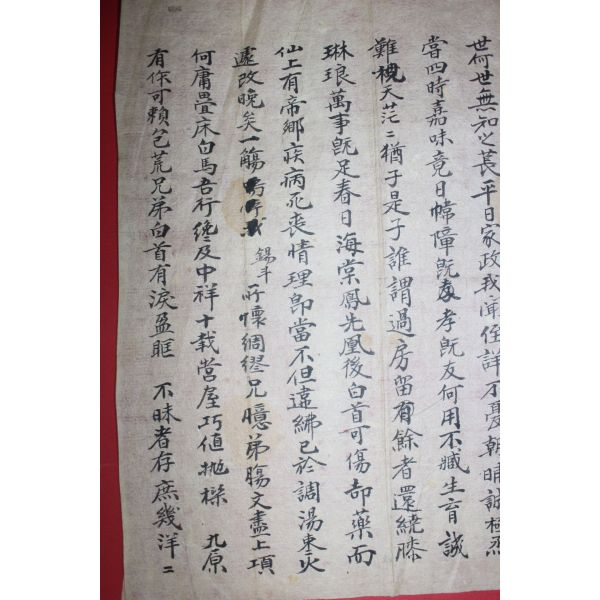 世何世無知之長平日家政我甯侄詳不憂朝晡誠極烝
當四時嘉味竟日幃障旣孝旣友何用不臧生育誠
難視天茫〻猶子是子誰謂過房留有餘者還繞膝
琳琅萬事旣足春日海棠鳳先凰後白首可傷却藥而
仙上有帝鄉疾病死喪情理卽當不但違紼已於調湯東火
遽改晚矣一觴嗚呼哉
錫斗所懷綢繆兄臆弟膓文盡上項
何庸疊床白馬吾行纔及中祥十載營屋巧値抛樑 九原
有你可賴包荒兄弟白首有淚盈眶 不昧者存庶幾洋〻